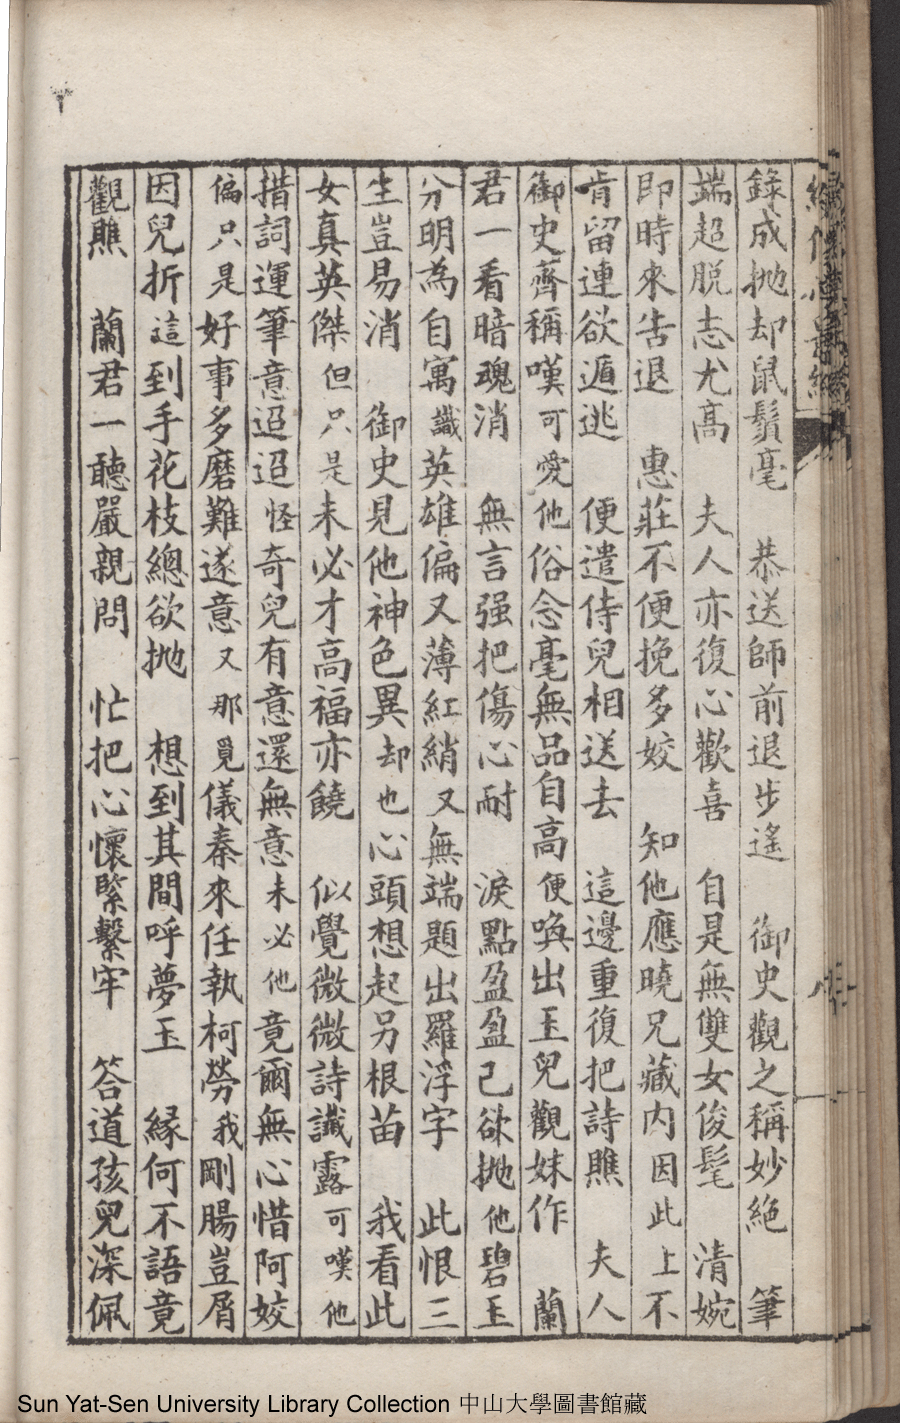 錄成抛却鼠鬚毫　恭送師前退步遙　御史觀之稱妙絕　筆
端超脫志尤高　夫人亦復心歡喜　自是無雙女俊髦　清婉
即時來告退　惠莊不便挽多姣　知他應曉兄藏内因此上不
肯留連欲遁逃　便遣侍兒相送去　這邊重復把詩瞧　夫人
御史齊稱嘆可愛他俗念毫無品自高便喚出玉兒觀妹作　蘭
君一看暗魂消　無言强把傷心耐　淚點盈盈已欲抛他碧玉
分明為自寓識英雄偏又薄紅綃又無端題出羅浮字　此恨三
生豈易消　御史見他神色異却也心頭想起另根苗　我看此
女真英傑但只是未必才高福亦饒　似覺微微詩讖露可嘆他
措詞運筆意迢迢怪奇兒有意還無意未必他竟爾無心惜阿姣
偏只是好事多磨難遂意又那覓儀秦來任執柯勞我剛腸豈屑
因兒折這到手花枝總欲抛　想到其間呼夢玉　緣何不語竟
觀瞧　蘭君一聽嚴親問　忙把心懷緊繫牢　答道孩兒深佩
Sun Yat-Sen University Library Collection 中山大學圖書館藏